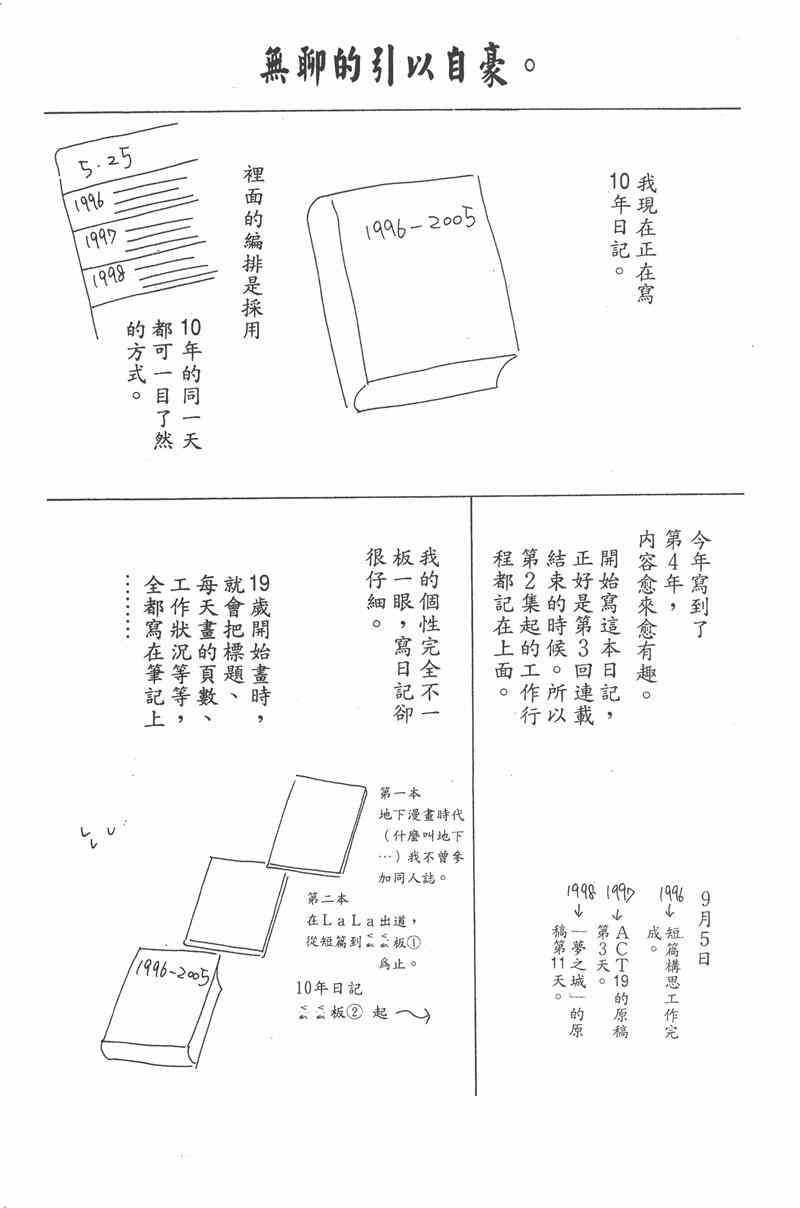 無聊的引以自豪。
我現在正在寫
10年日記。
1996-2005
裡面的編排是採用
5.25
1996
1997
1998
10年的同一天
都可一目了然
的方式。
今年寫到了
第4年，
內容愈來愈有趣。
開始寫這本日記，
正好是第3回連載
結束的時候。所以
第2集起的工作行
程都記在上面。
9月5日
1996
↓
短篇構思工作完
成。
1997
↓
ACT19的原稿
第3天。
1998
↓
「夢之城」的原
稿第11天。
我的個性完全不一
板一眼，寫日記卻
很仔細。
19歲開始畫時，
就會把標題、
每天畫的頁數、
工作狀況等等，
全都寫在筆記上
………
第一本
地下漫畫時代
（什麼叫地下
…）我不曾參
加同人誌。
第二本
在LaLa出道，
從短篇到
板①
為止。
1996-2005
10年日記
板② 起